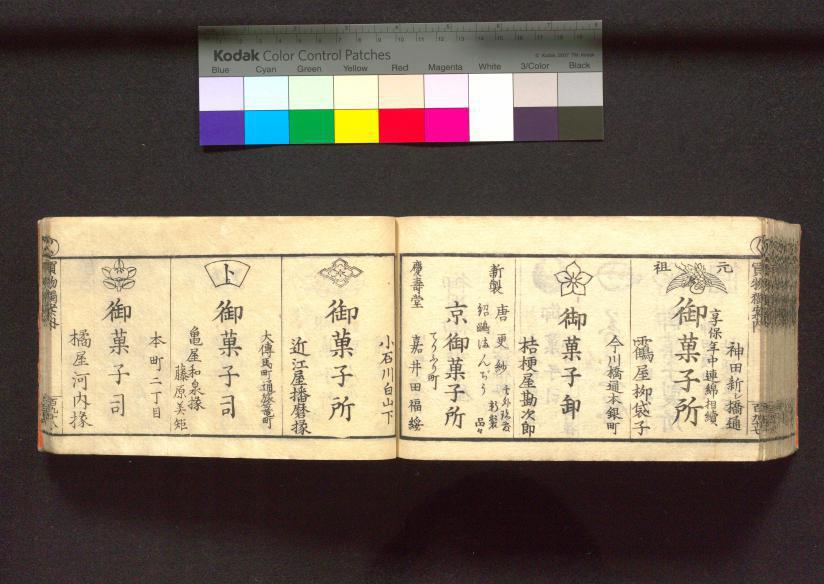 Kodak Color Control Patches
© Kodak, 2007 TM: Kodak
Blue Cyan Green Yellow Red Magenta White 3/Color Black
元祖
神田新シ橋通
享保年中連綿相續
御菓子所
今川橋通本銀町
御菓子卸
桔梗屋勘次郎
新製
唐更紗
紹鷗はんぢう
品々
京御菓子所
てりふり町
慶壽堂
嘉井田福綏
小石川白山下
御菓子所
近江屋播磨掾
大傳馬町通旅篭町
上
御菓子司
亀屋和泉掾
藤原美矩
本町二丁目
御菓子司
橘屋河内掾